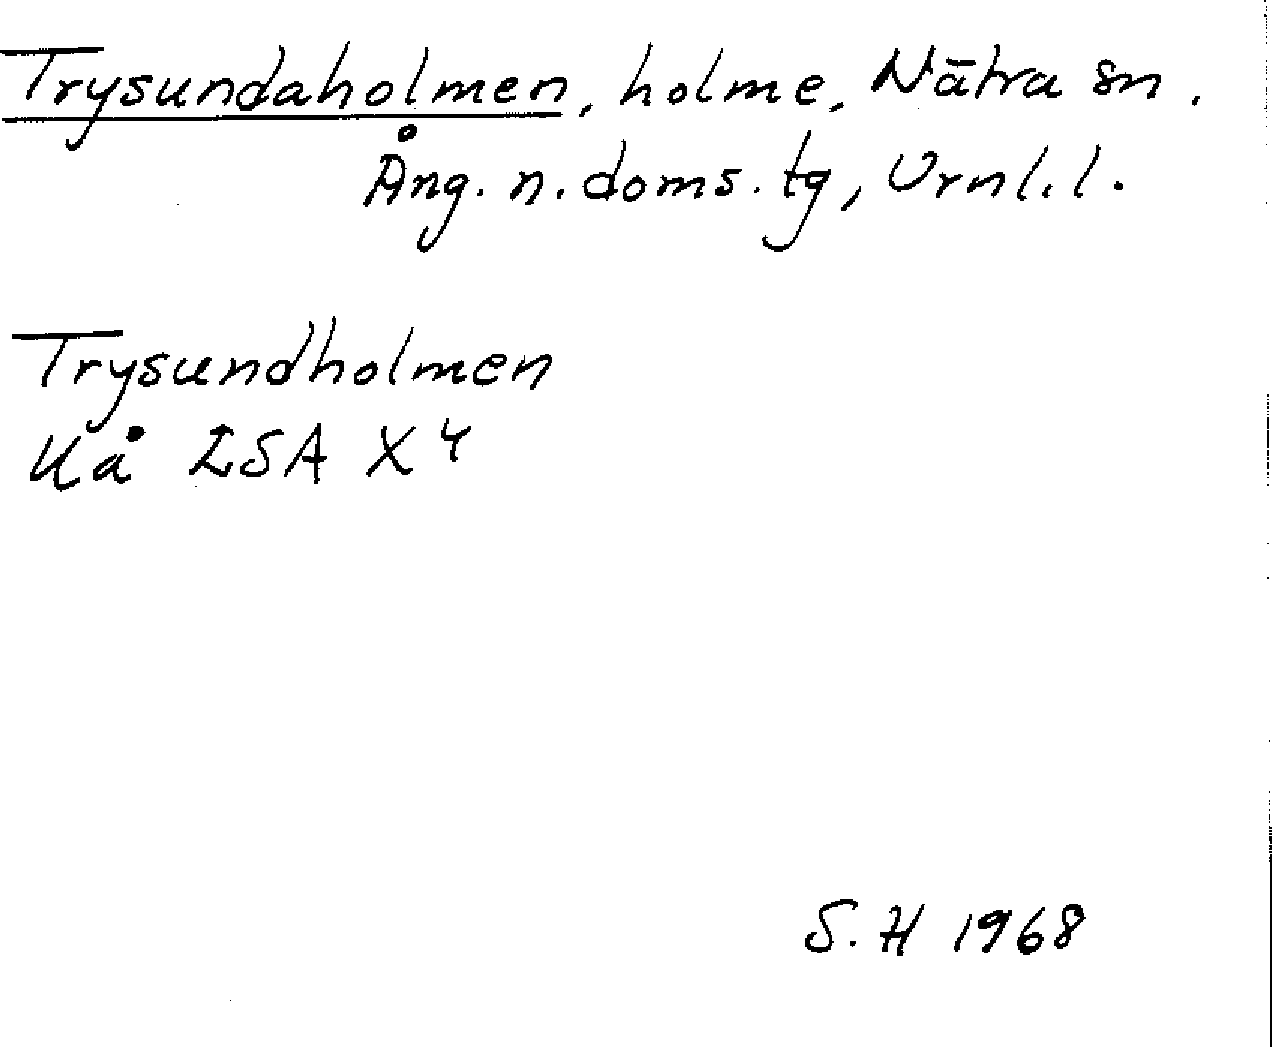 Trysundaholmen, holme, Nätra sn.
Ång. n. doms. tg, Vrnl. l.
Trysundholmen
Kå LSA X 4
S. H 1968